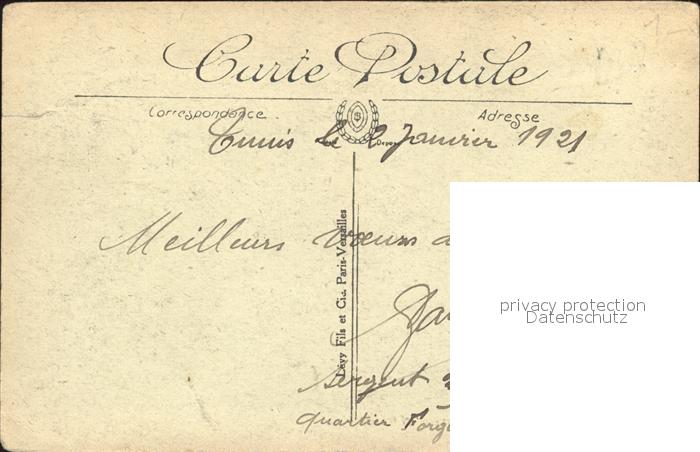 Carte Postale
Correspondance
Adresse
Tunis le 2 Janvier 1921
Meilleurs vœux
Lévy Fils et Cie. Paris-Versailles
Sergent
Quartier
privacy protection
Datenschutz